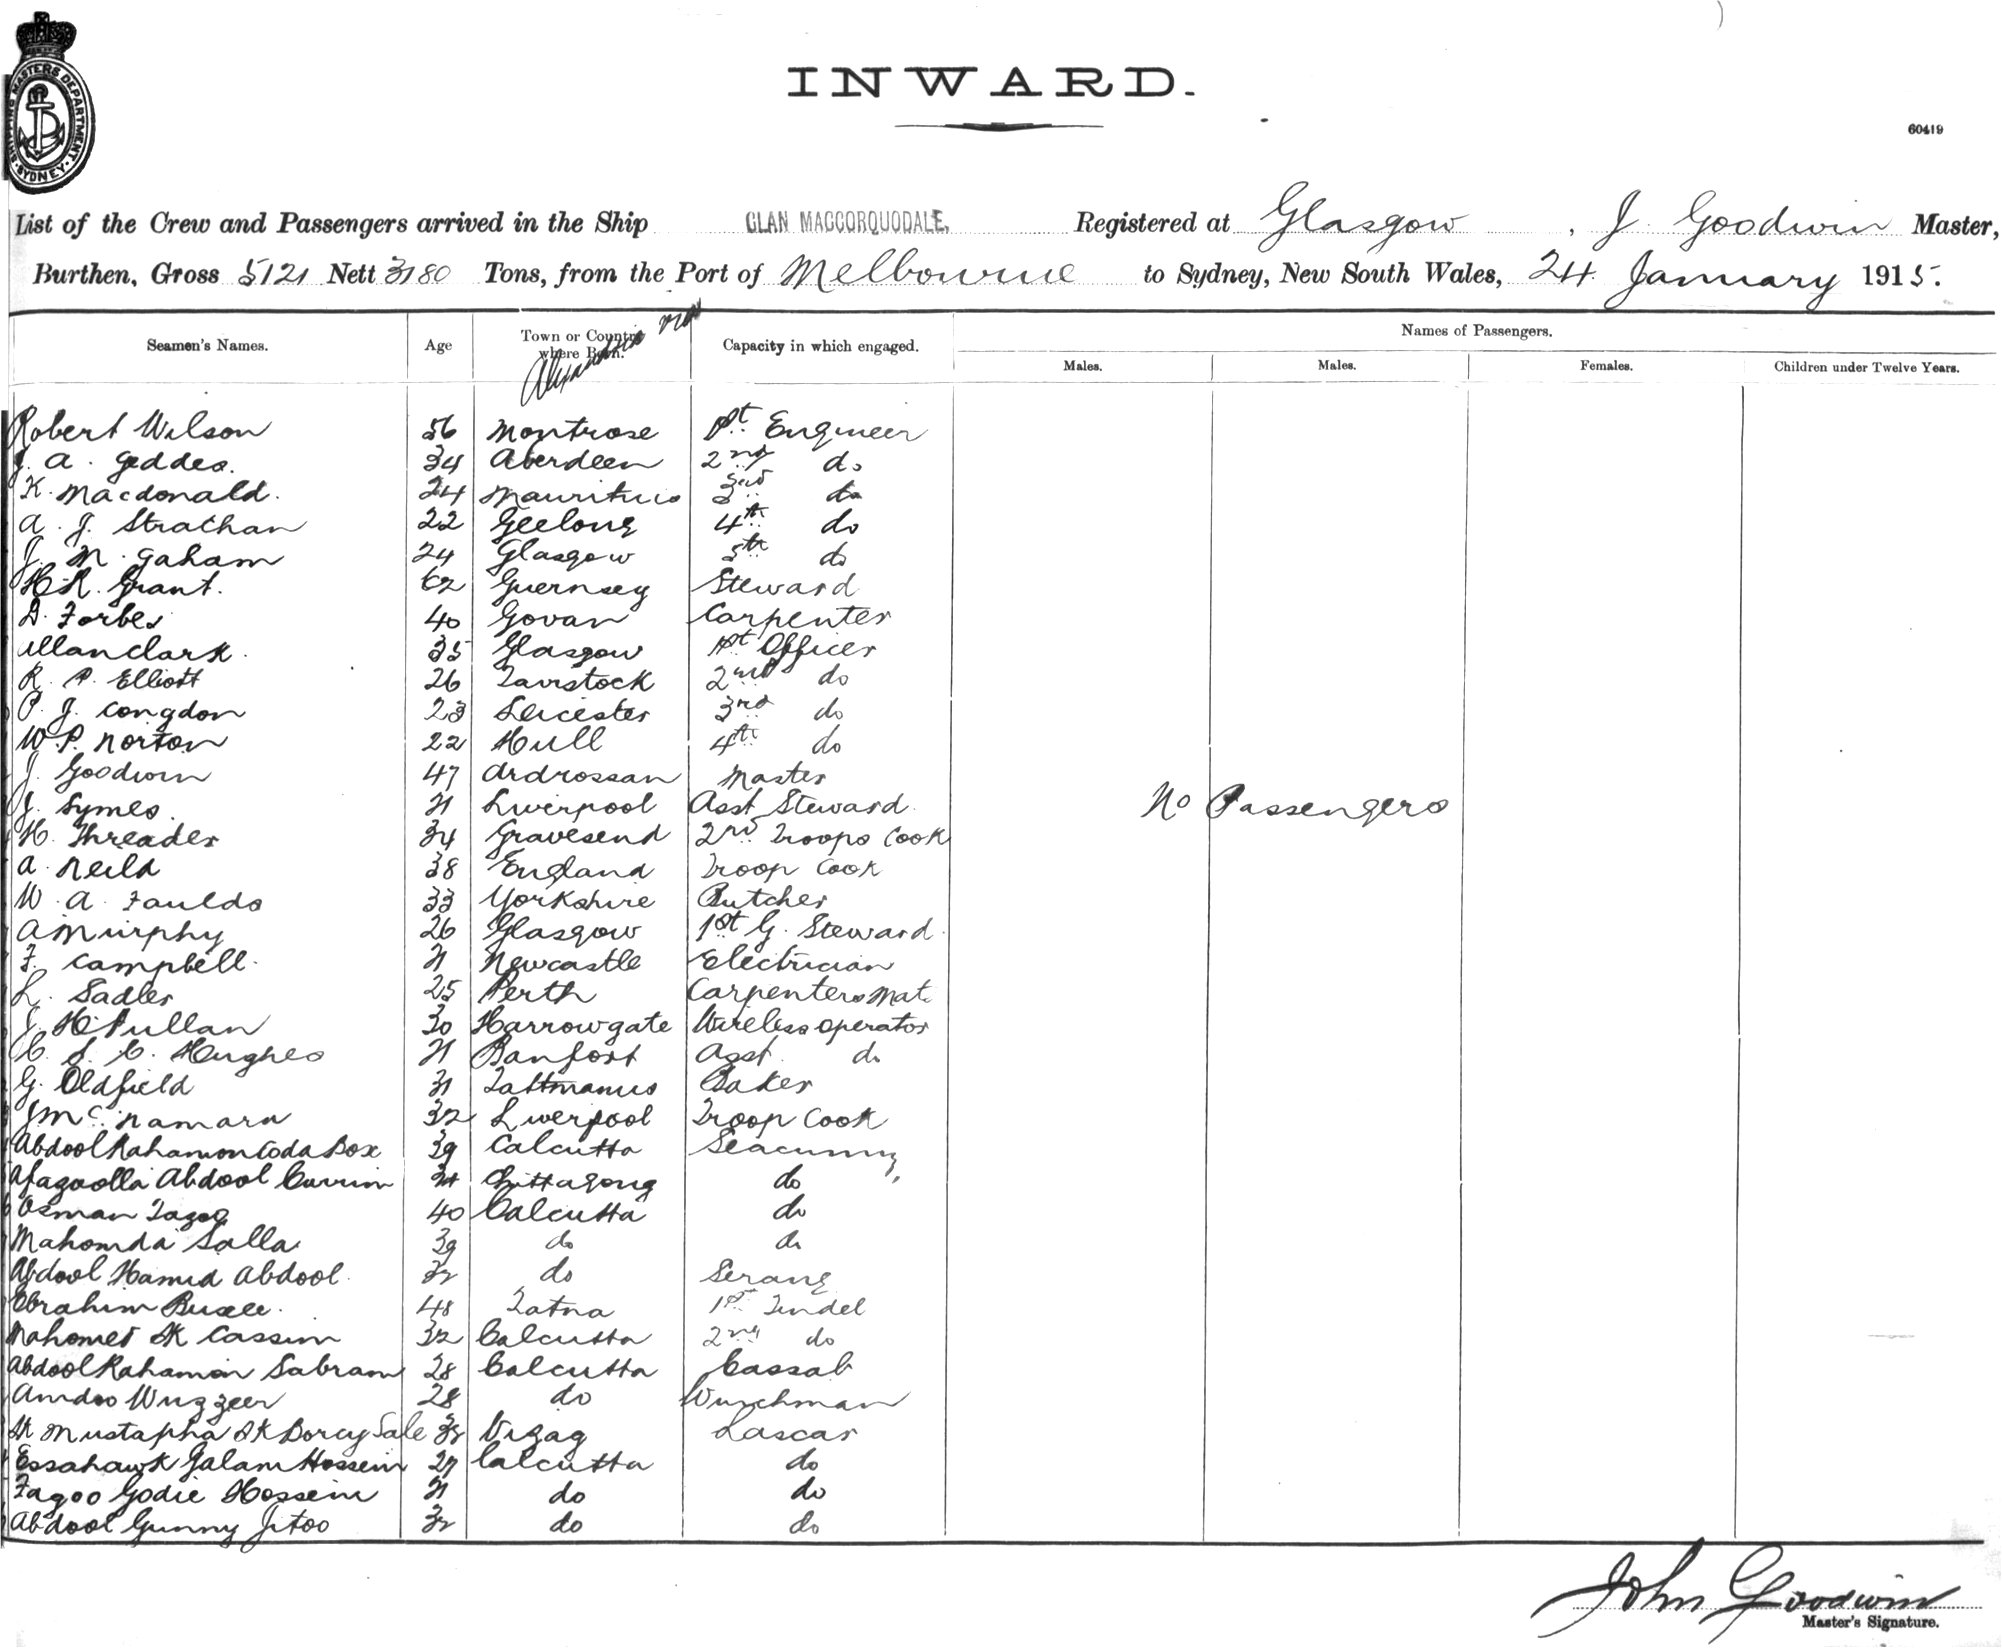 SHIPPING MASTERS DEPARTMENT. SYDNEY
INWARD.
60419
List of the Crew and Passengers arrived in the Ship CLAN MACCORQUODALE, Registered at Glasgow, J. Goodwin Master,
Burthen, Gross 5121 Nett 3180 Tons, from the Port of Melbourne to Sydney, New South Wales, 24 January 1915.
Names of Passengers.
Seamen's Names. Age Town or Country where Born. Capacity in which engaged. Males. Males. Females. Children under Twelve Years.
Alexandria
Robert Wilson 56 Montrose 1st Engineer
J. A. Geddes. 34 Aberdeen 2nd do
K. Macdonald. 24 Mauritius 3rd do
A. J. Strathan 22 Geelong 4th do
J. M. Gaham 24 Glasgow 5th do
H. R. Grant. 62 Guernsey Steward
D. Forbes 40 Govan Carpenter
Allan Clark. 35 Glasgow 1st Officer
R. P. Elliott 26 Tavistock 2nd do
P. J. Congdon 23 Leicester 3rd do
W. P. Norton 22 Hull 4th do
J. Goodwin 47 Ardrossan Master
J. Symes. 21 Liverpool Asst Steward.
No Passengers
H. Threader 34 Gravesend 2nd Troops Cook
A. Neild 38 England Troop Cook
W. A. Faulds 33 Yorkshire Butcher
A Murphy 26 Glasgow 1st G. Steward.
F. Campbell. 21 Newcastle Electrician
L. Sadler 25 Perth Carpenters Mat.
J. H. Pullan 30 Harrowgate Wireless operator
C. S. C. Hughes 21 Banfort Asst. do
G. Oldfield 31 Baker
J Mc Namara 32 Liverpool Troop Cook
Abdool Rahamon Coda Box 39 Calcutta Seacunny
Abdool Currim Chittagong do
Osman 40 Calcutta do
Mahomda Salla 39 do do
Abdool Hamid Abdool. 32 do Serang
Ebrahim Buxee. 48 1st Tindel
Mahomed SK Cassim 32 Calcutta 2nd do
Abdool Rahaman Sabram 28 Calcutta Cassab
Amdoo Wuzzeer 28 do
SK Mustapha SK Borcy Sale 38 Vizag Lascar
Essahawk Galam Hossein 27 Calcutta do
Fagoo Godie Hossein 21 do do
Abdool Gunny Jitoo 32 do do
John Goodwin
Master's Signature.